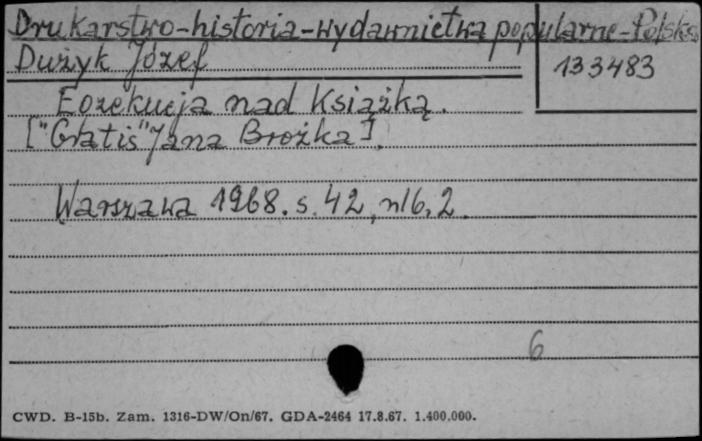 Drukarstwo-historia-wydawnictwa popularne-Polska
Dużyk Józef
133483
Egzekucja nad Książką.
["Gratis" Jana Brożka].
Warszawa 1968. s. 42, nlb, 2.
6
CWD. B-15b. Zam. 1316-DW/On/67. GDA-2464 17.8.67. 1.400.000.